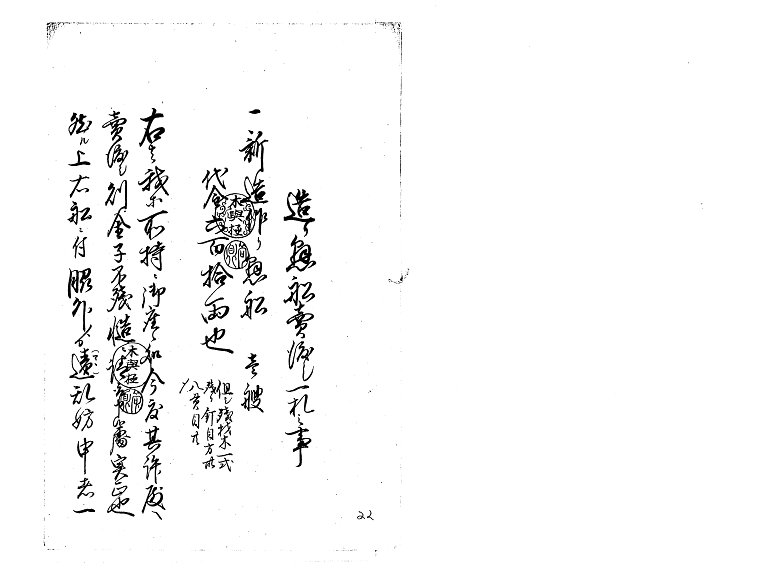 造り懸船賣渡し一札之事
一新造作り懸船 壱艘
代金弐百拾両也
但し残材木一式
釘目方
八貫目
右之我等所持ニ御座候処今度其許殿へ
賣渡し則金子不残慥請取申処実正也
然ル上右船ニ付脇外より違乱妨申者一
木與極
木與極
22